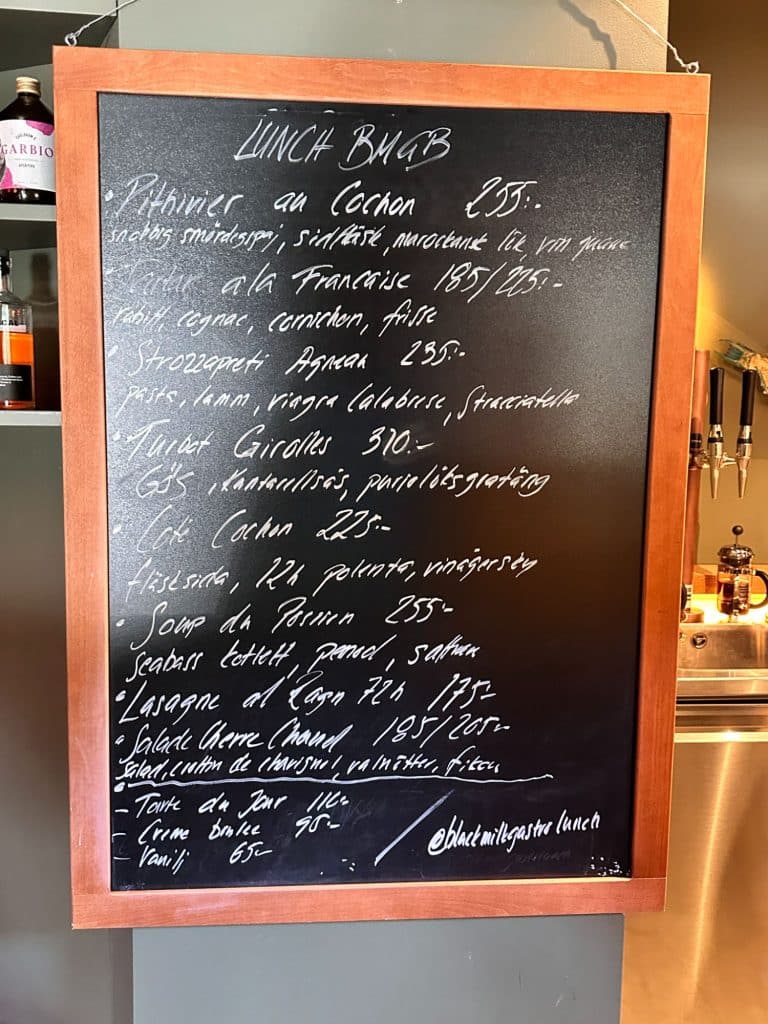 GARBIO
LUNCH BMGB
• Pithivier au Cochon 255:-
smördegspaj, sidfläsk, marockansk lök, vin jaune
Tartar ala Francaise 185/225:-
rabiff, cognac, cornichon, frisse
• Strozzapreti Agneau 235:-
pasta, lamm, viagra Calabrese, Stracciatella
• Turbot Girolles 310:-
Gös, Kantarellsås, purjolöksgratäng
• Coté Cochon 225:-
fläsksida, 12h polenta, vinägersky
• Soup du Poisson 255:-
seabass kotlett, pernod, saffran
• Lasagne al Ragu 72h 175:-
• Salade Chevre Chaud 185/205:-
salad, valnötter, fikon
- Tarte du Jour
- Creme brulee 95:-
- Vanilj 65:-
@blackmilkgastrolunch